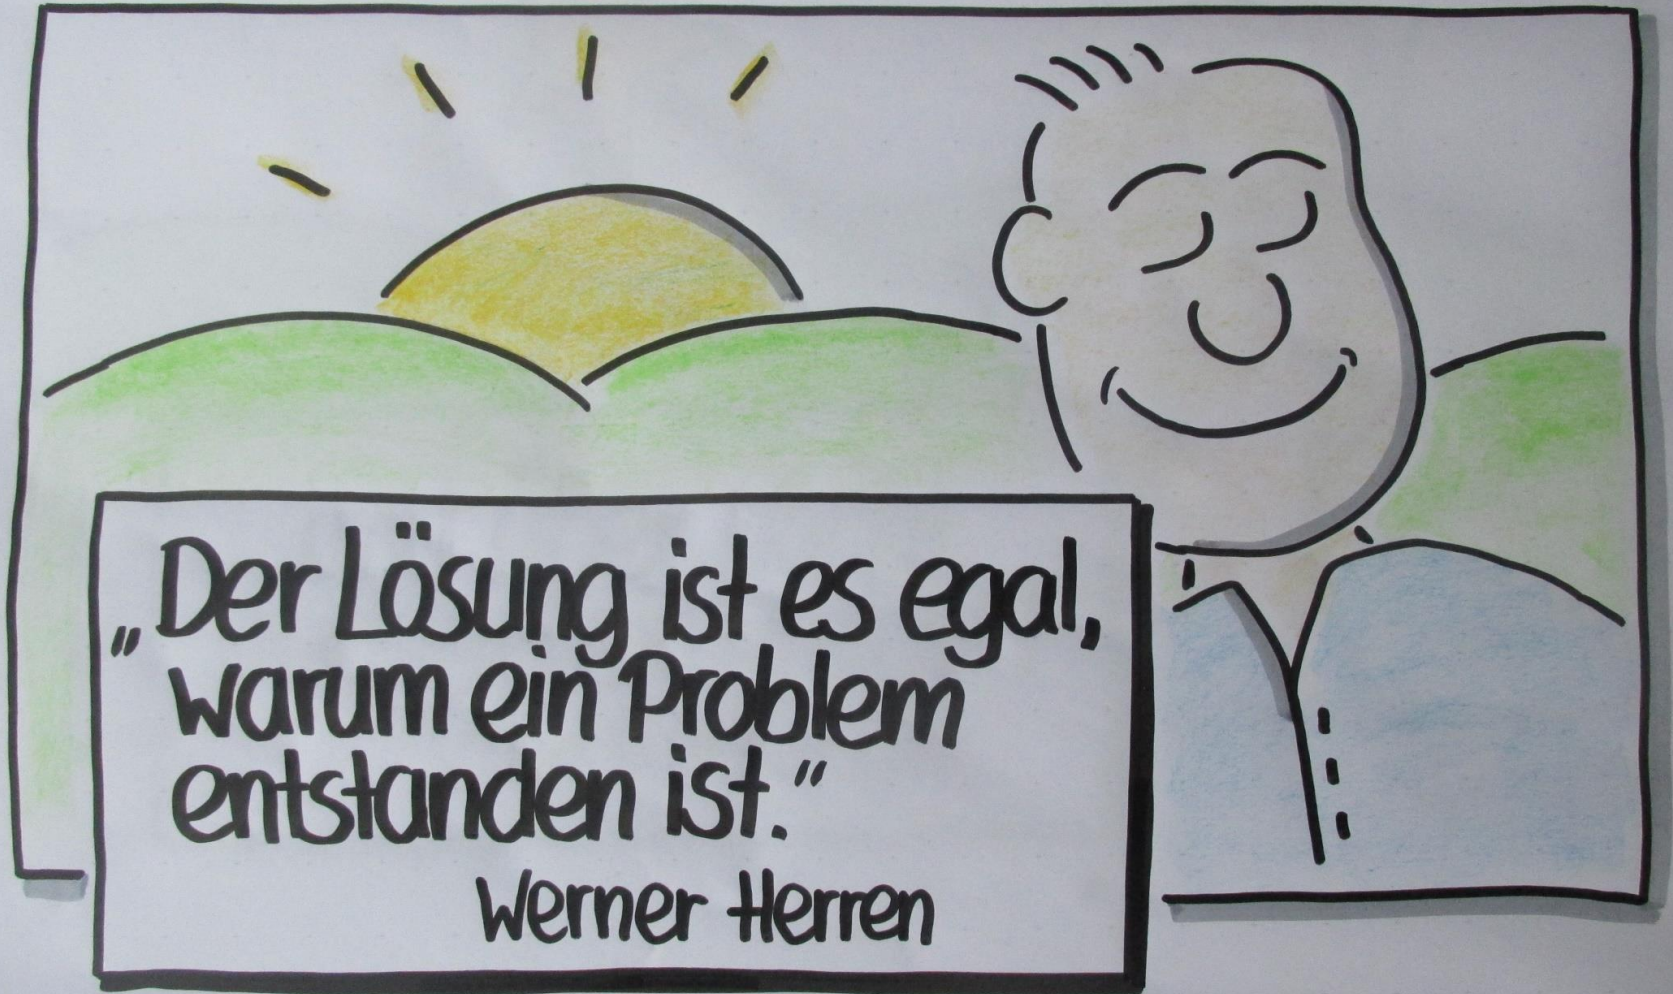 „Der Lösung ist es egal,
warum ein Problem
entstanden ist.“
Werner Herren